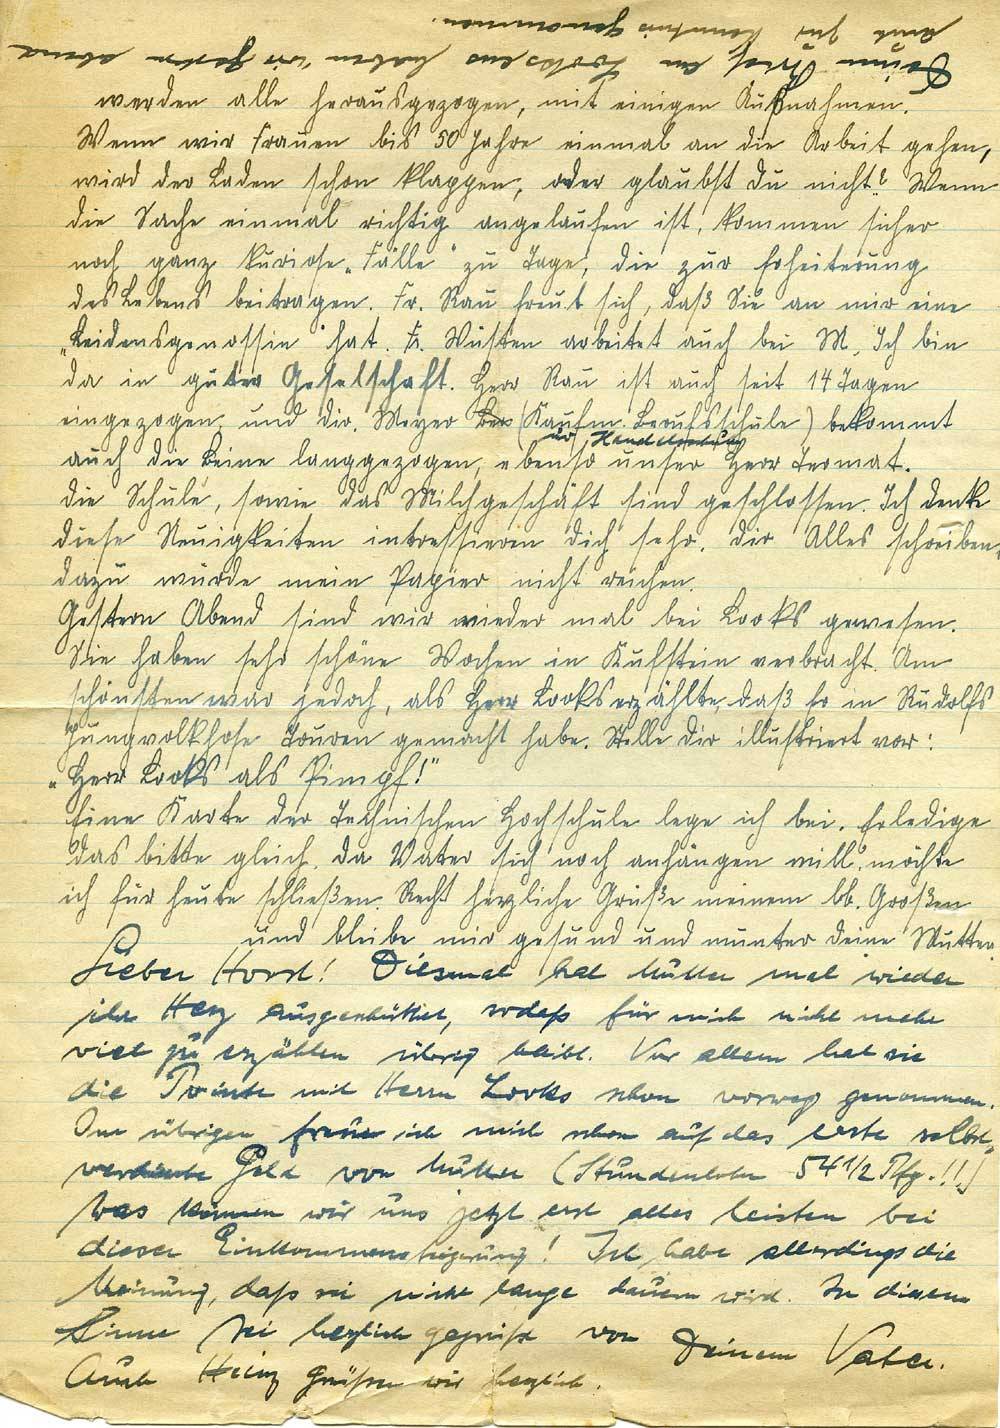 Deinen Brief an Looksens haben wir gestern abend
auch zur Kenntnis genommen.
werden alle herausgezogen, mit einigen Außnahmen.
Wenn wir Frauen bis 50 Jahre einmal an die Arbeit gehen,
wird der Laden schon klappen, oder glaubst Du nicht? Wenn
die Sache einmal richtig angelaufen ist, kommen sicher
noch ganz kuriose „Fälle“ zu Tage, die zur Erheiterung
des Lebens beitragen. Fr. Rau freut sich, daß Sie an mir eine
„Leidensgenossin“ hat. Fr. Wüsten arbeitet auch bei M. Ich bin
da in guter Gesellschaft. Herr Rau ist auch seit 14 Tagen
eingezogen, und Dir. Meyer (Kaufm. Berufsschule) bekommt
auch die Beine langgezogen, ebenso unser Herr Termat.
Die Schule, sowie das Milchgeschäft sind geschlossen. Ich denke
diese Neuigkeiten intressieren Dich sehr. Dir Alles schreiben,
dazu würde mein Papier nicht reichen.
Gestern Abend sind wir wieder mal bei Looks gewesen.
Sie haben sehr schöne Wochen in Kufstein verbracht. Am
schönsten war jedoch, als Herr Looks erzählte, daß Er in Rudolfs
Jungvolkhose Touren gemacht habe. Stelle Dir illustriert vor:
„Herr Looks als Pimpf!“
Eine Karte der Technischen Hochschule lege ich bei. Erledige
das bitte gleich. Da Vater sich noch anhängen will, möchte
ich für heute schließen. Recht herzliche Grüße meinem lb. Großen
und bleibe mir gesund und munter Deine Mutter.
Lieber Horst! Diesmal hat Mutter mal wieder
ihr Herz ausgeschüttet, sodaß für mich nicht mehr
viel zu erzählen übrig bleibt. Vor allem hat sie
die Pointe mit Herrn Looks schon vorweg genommen.
Im übrigen freue ich mich schon auf das erste selbst-
verdiente Geld von Mutter (Stundenlohn 54 1/2 Pfg.!!)
Was können wir uns jetzt erst alles leisten bei
dieser Einkommensteigerung! Ich habe allerdings die
Meinung, daß sie nicht lange dauern wird. In diesem
Sinne sei herzlich gegrüßt von Deinem Vater.
Auch Heinz grüßen wir herzlich.